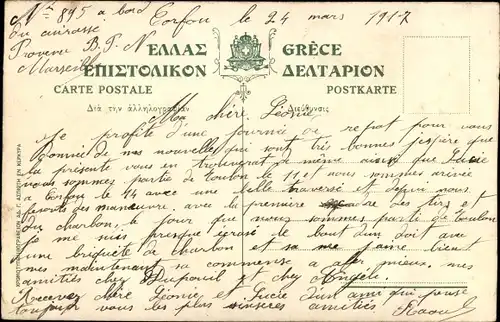 Nº 845 a bord Corfou le 24 mars 1917
du cuirassé
Provence B. P. N
Marseille
ΕΛΛΑΣ GRÈCE
ΕΠΙΣΤΟΛΙΚΟΝ ΔΕΛΤΑΡΙΟΝ
CARTE POSTALE POSTKARTE
Διὰ τὴν ἀλληλογραφίαν Διεύθυνσις
Ma chère Léonie
Je profite d'une journée de repot pour vous
donnié de nos nouvelles qui sont très bonnes j'espère que
la présente vous en trouverat de même ainsi que Lucie
nous sommes partie de toulon le 11 et nous sommes arrivée
a Corfou le 14 avec une belle traversé et depui nous
fesons des manœuvre, avec la première des tirs et
du charbon, le jour que nous sommes partie de toulon
je me suis presque écrasé le bout d'un doit avec
une briquète de charbon et sa me faire bien
mes maintenant sa commence a aller mieux, mes
amitiés chez Dupouil et chez Angèle
Recever chère Léonie et Lucie d'un ami qui pense
toujours vous les plus sinseres amitiés Raoul